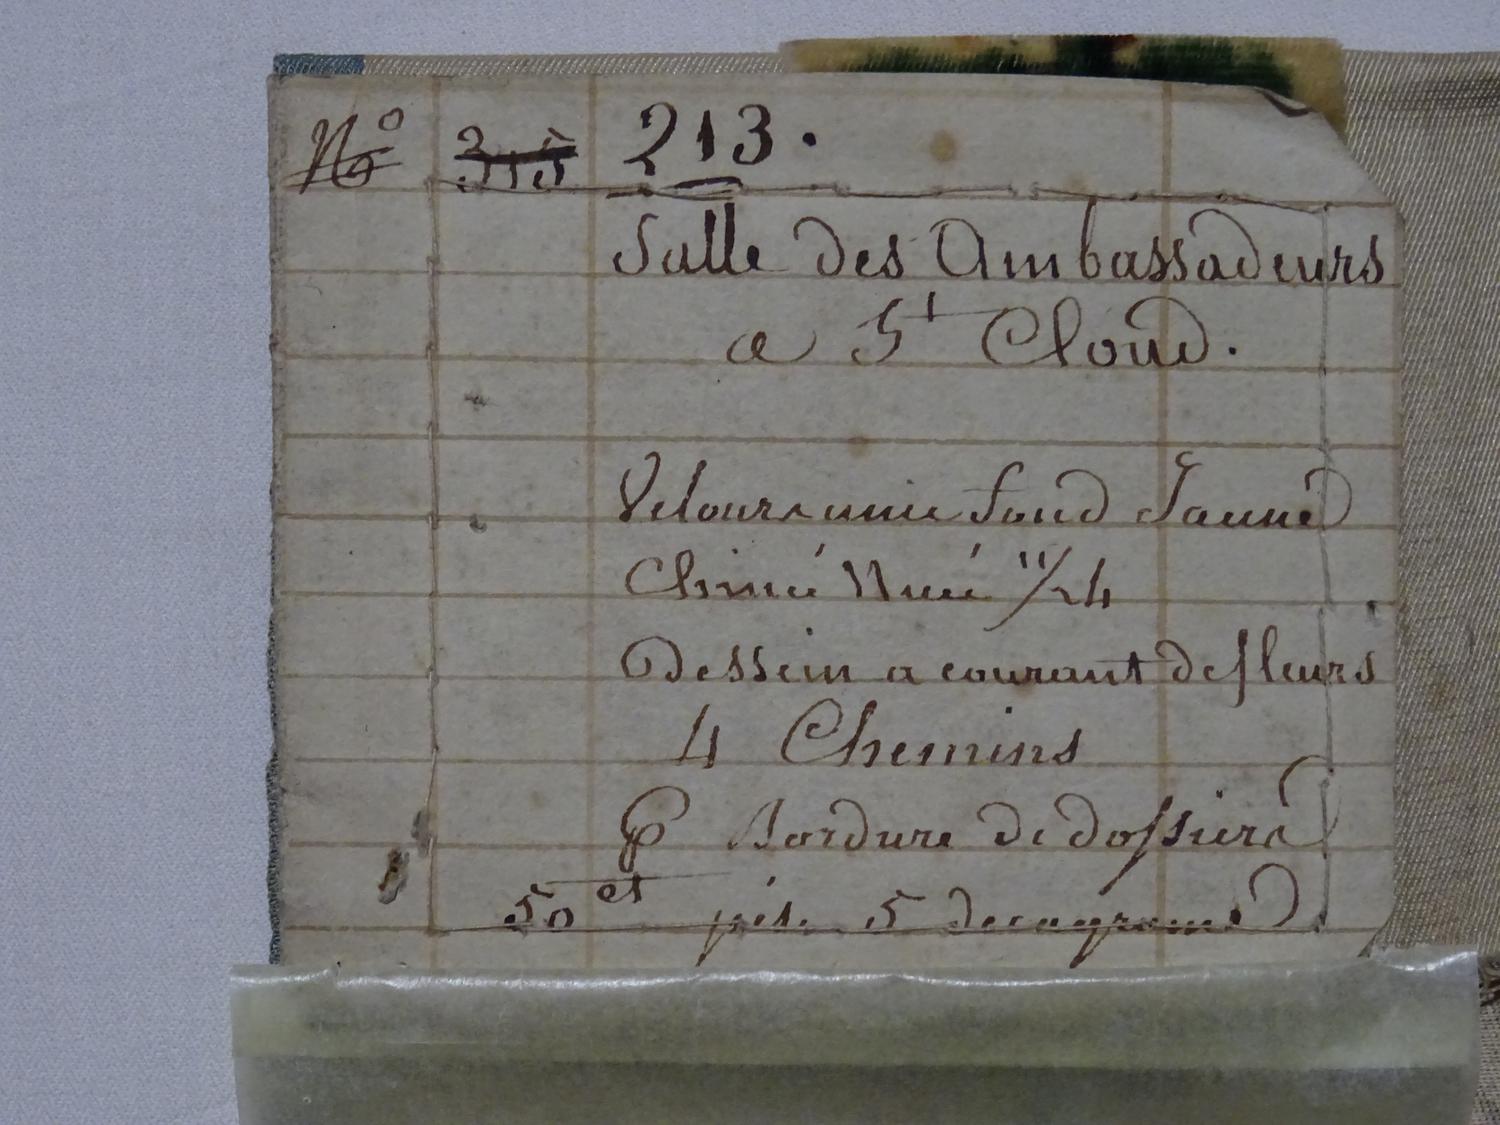 N° 213.
Salle des Ambassadeurs
a St Cloud.
Velours unie fond Jaune
Chiné Nué 11/24
Dessein a courant de fleurs
4 Chemins
P Bordure de dossiers
50 ct pés. 5 decagrame